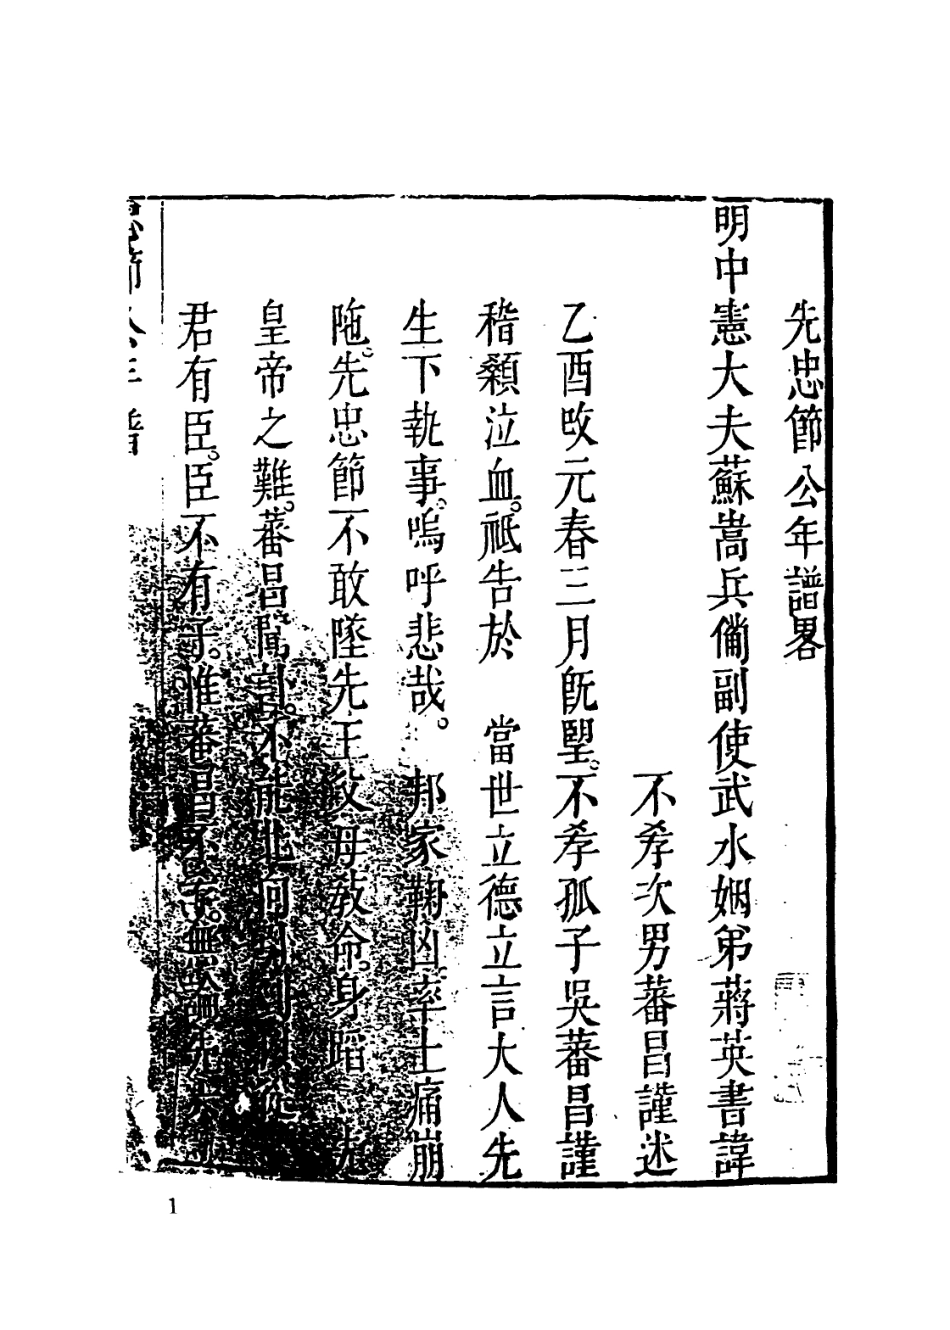 先忠節公年譜畧
明中憲大夫蘇嵩兵備副使武水姻弟蔣英書諱
不孝次男蕃昌謹述
乙酉改元春三月旣望。不孝孤子吳蕃昌謹
稽顙泣血。祗告於　當世立德立言大人先
生下執事。嗚呼悲哉。　邦家鞠凶。率土痛崩
陁。先忠節不敢墜先王父母敎命。身蹈　先
皇帝之難。蕃昌聞訃。不能北向
君有臣。臣不有子。惟蕃昌不孝。無
忠節公年譜
1